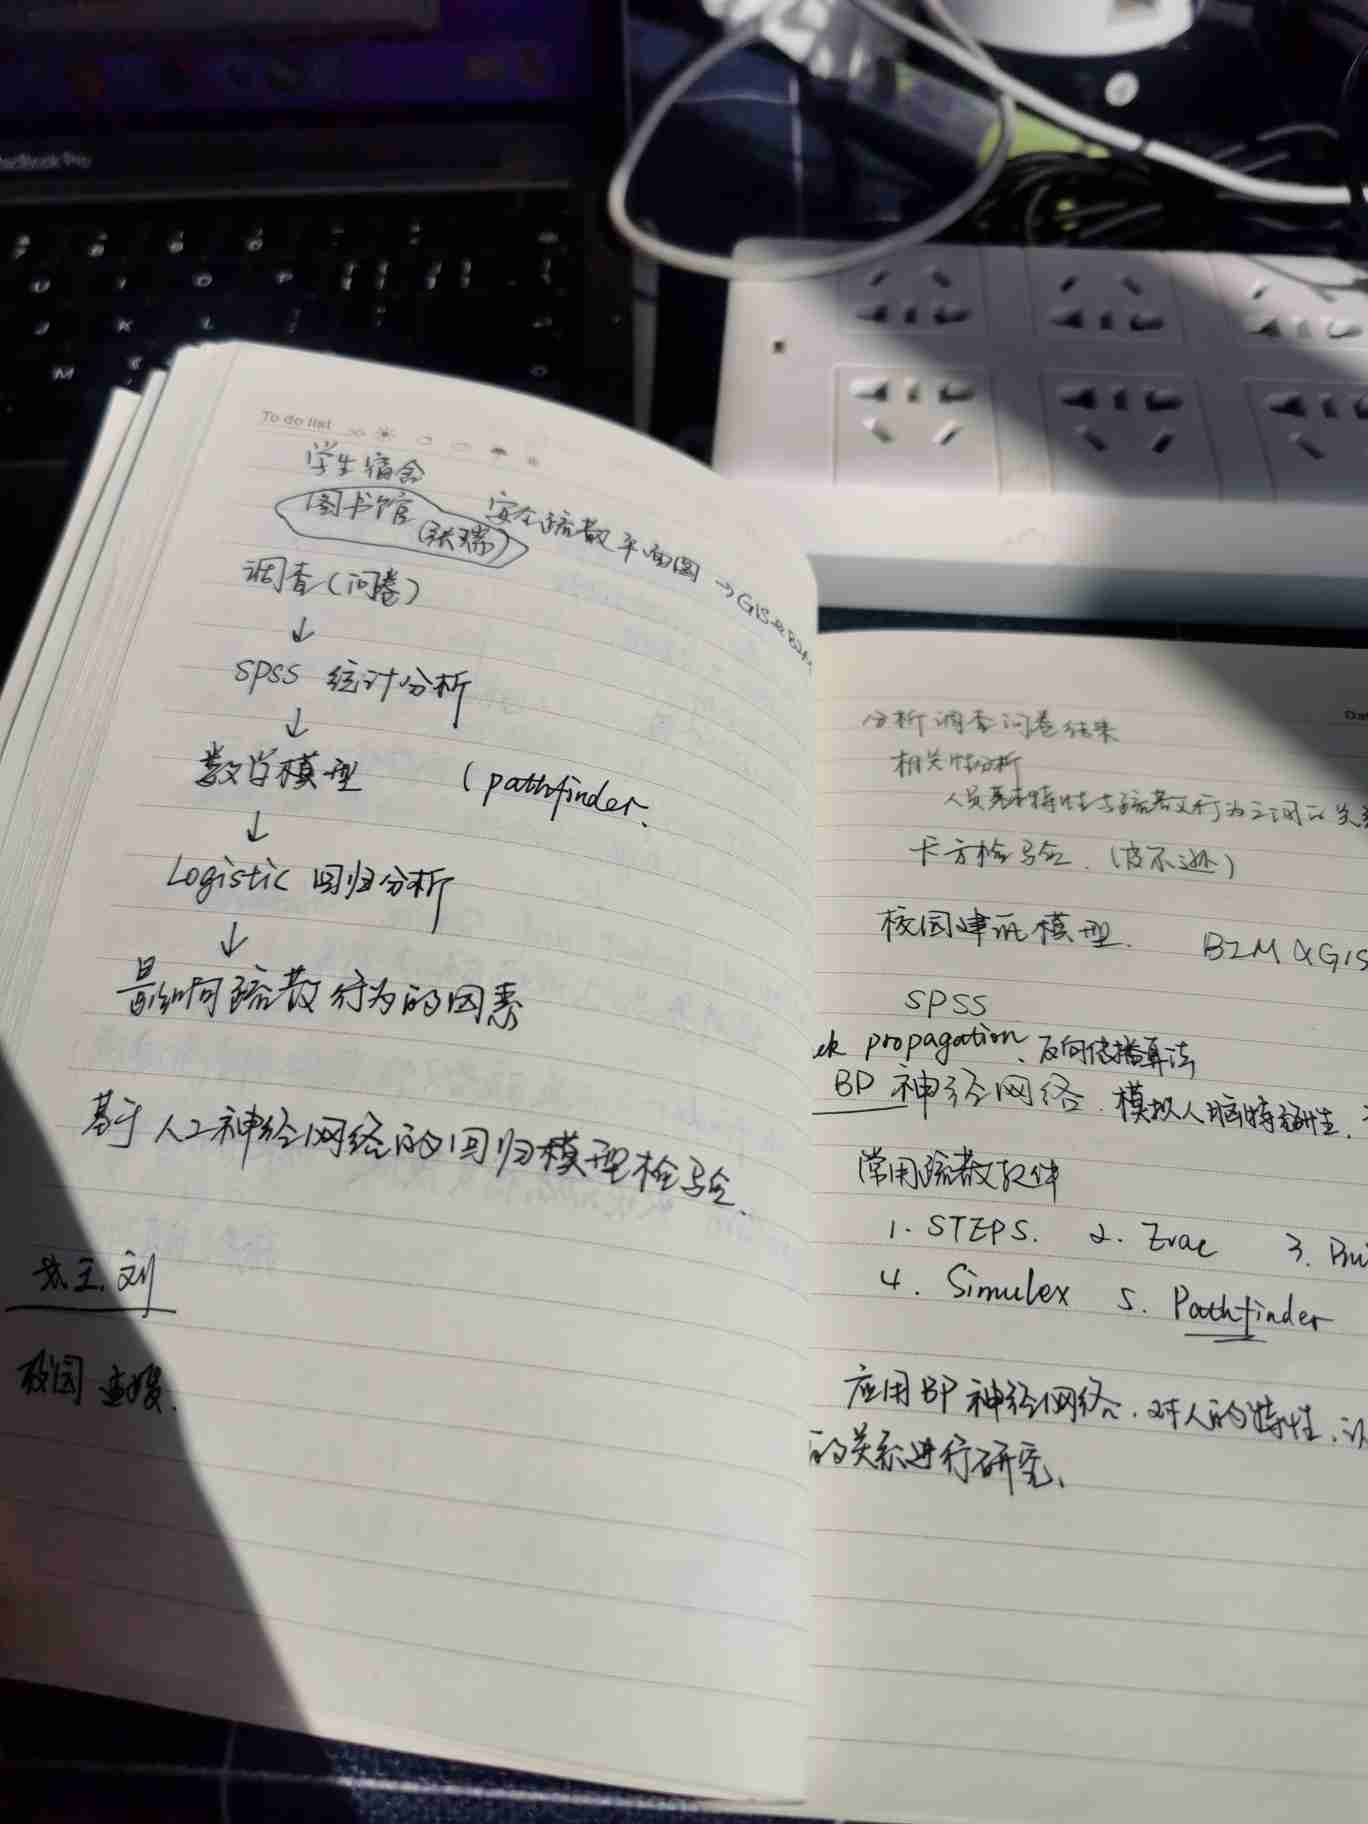 MacBook Pro
To do list
学生宿舍
图书馆 安全疏散平面图 → GIS & BIM
(张瑞)
调查(问卷)
↓
SPSS 统计分析
↓
数学模型 (pathfinder、
↓
Logistic 回归分析
↓
影响疏散行为的因素
基于人工神经网络的回归模型检验、
王、刘
校园
分析调查问卷结果
相关性分析
人员基本特性与疏散行为之间的关系
卡方检验、(皮尔逊)
校园建筑模型. BIM & GIS
SPSS
propagation、反向传播算法
BP 神经网络. 模拟人脑特性、
常用疏散软件
1. STEPS. 2. Evac 3. Bui
4. Simulex 5. Pathfinder
应用BP神经网络、对人的特性、
的关系进行研究、